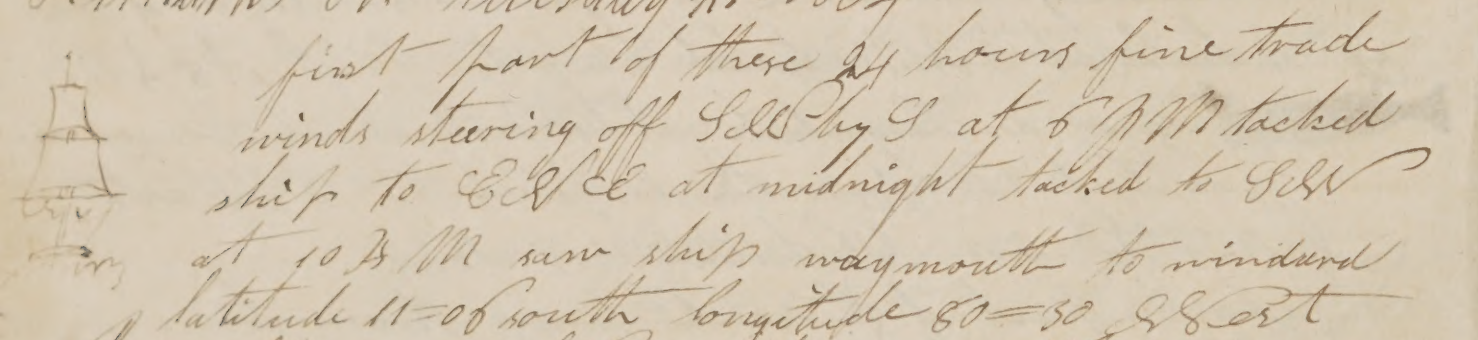 Remarks on Tuesday
first part of these 24 hours fine trade
winds steering off SW by S at 6 PM tacked
ship to ENE at midnight tacked to SW
at 10 AM saw ship waymouth to windard
latitude 11=06 south longitude 80=30 West